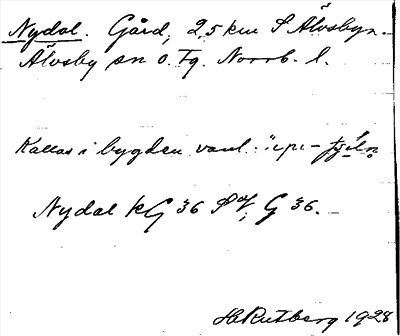 Nydal. Gård, 2,5 km S Älvsbyn.
Älvsby sn o. tg. Norrb. l.
Kallas i bygden vanl.
Nydal kG 36 SV, G 36.
H Rutberg 1928